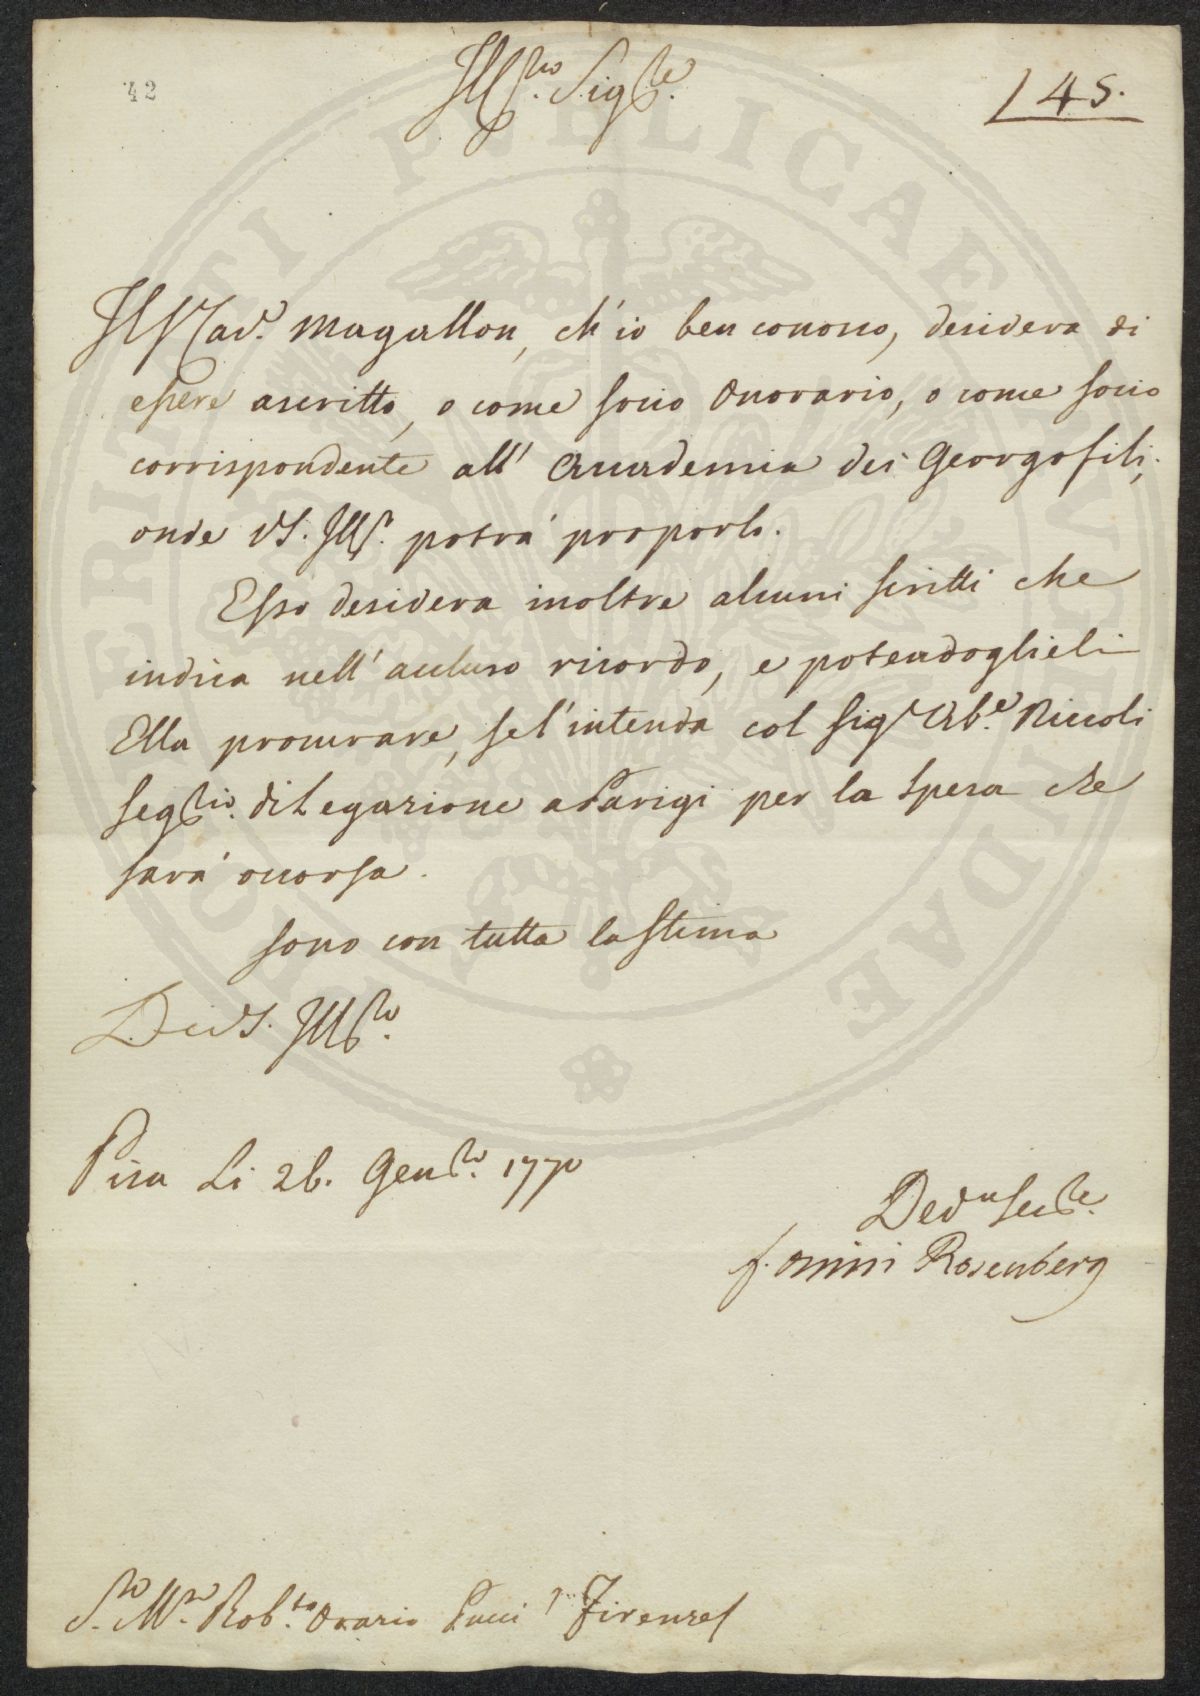 42
Ill.mo Sig.re
45.
Il Cav.r Magallon, ch'io ben conosco, desidera di
essere ascritto, o come socio Onorario, o come socio
corrispondente all' Accademia dei Georgofili;
onde VS. Ill.ma potrà proporlo.
Esso desidera inoltre alcuni scritti che
indica nell' accluso ricordo, e potendoglieli
Ella procurare, se l'intenda col Sig.r Ab.e Niccoli
Seg.rio di Legazione a Parigi per la spesa che
sarà occorsa.
Sono con tutta la stima
Di VS. Ill.ma
Pisa Li 26. Gen.ro 1770
Rosenberg
Rob.to Orazio Pucci Firenze
PUBLICAE